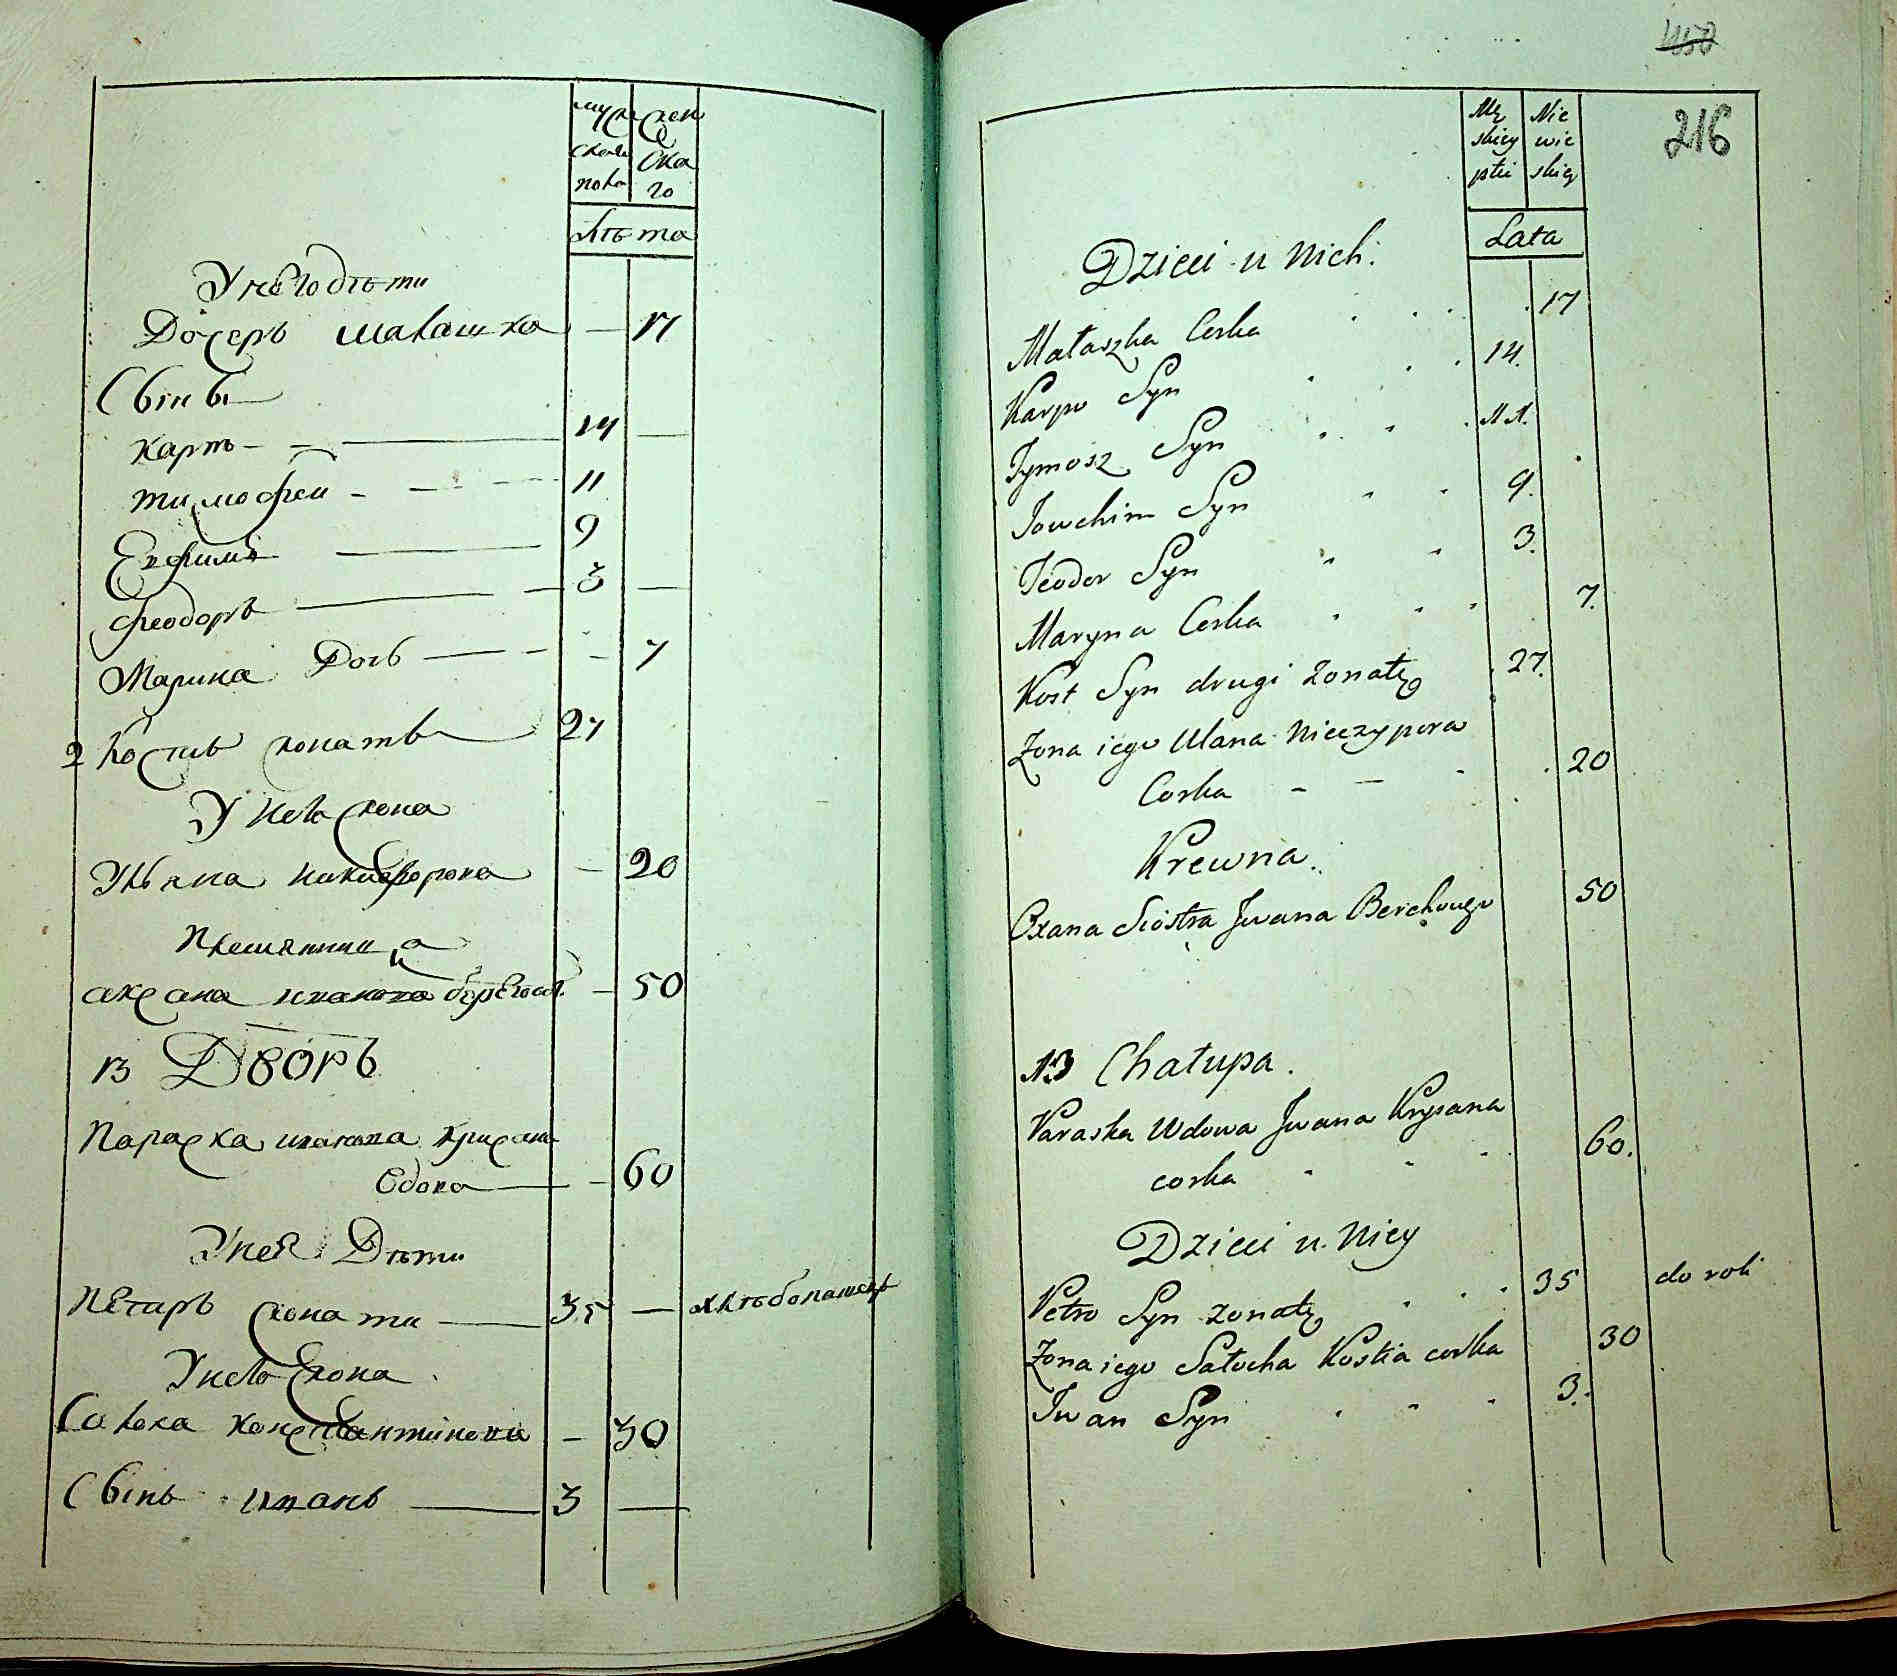 мужеска пола
женскаго
лѣта
У него дѣти
Дочерь малашка — 17
Сынъ
карпъ — 14 —
тимофеи — 11
Ехфимъ — 9
феодоръ — 3 —
Марина Дочь — 7
2 Костъ жонатъ 27
У него жона
Уляна никифорова — 20
племянница
аксана иванова — 50
13 Дворъ
Параска иванова
вдова — 60
У нея Дѣти
Петаръ жонати — 35 — хлѣбопашецъ
У него жона
Солоха константинова — 30
Сынъ иванъ — 3 —
216
Męskiey płci
Niewieskiey
Lata
Dzieci u Nich.
Małaszka Corka 17
Karpo Syn 14.
Tymosz Syn 11.
Jowchim Syn 9.
Teodor Syn 3.
Maryna Corka 7.
Kost Syn drugi żonaty 27.
Zona iego Ulana Nieczypora
Corka 20
Krewna.
Oxana Siostra Jwana 50
13 Chałupa.
Paraska Wdowa Jwana Krysana
corka 60.
Dzieci u Niey
Petro Syn żonaty 35 do roli
Żona iego Sałocha Kostia corka 30
Jwan Syn 3.